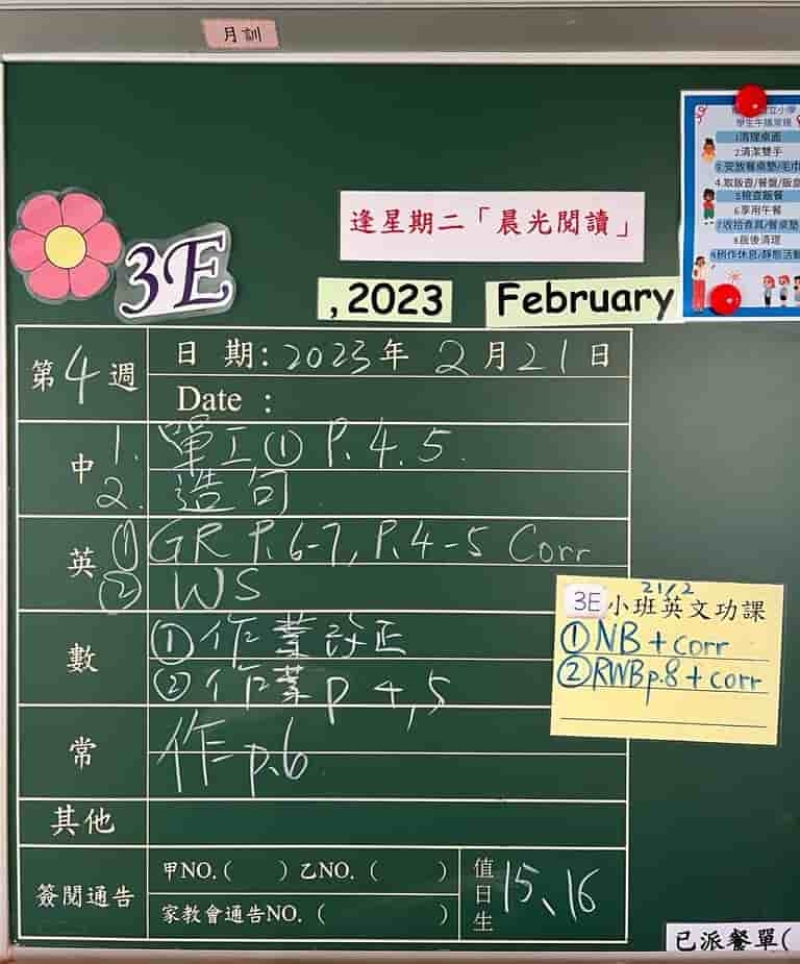 月訓
立小學
學生午膳常規
1清理桌面
2.清潔雙手
3.安放餐桌墊/毛巾
4.取飯壺/餐盤/飯盒
5檢查飯餐
6.享用午餐
7收拾食具/餐桌墊
8.飯後清理
9稍作休息/靜態活動
逢星期二「晨光閱讀」
3E
, 2023 February
第4週
日 期: 2023年 2月21日
Date :
中 1. 單工① P. 4. 5.
2. 造句
英 ① GR P. 6-7, P. 4-5 Corr
② WS
3E 小班英文功課 21/2
① NB + corr
② RWB p.8 + corr
數 ① 作業改正
② 作業 p 4, 5
常 作 p. 6
其他
簽閱通告
甲NO. ( ) 乙NO. ( )
家教會通告NO. ( )
值日生 15、16
已派餐單(